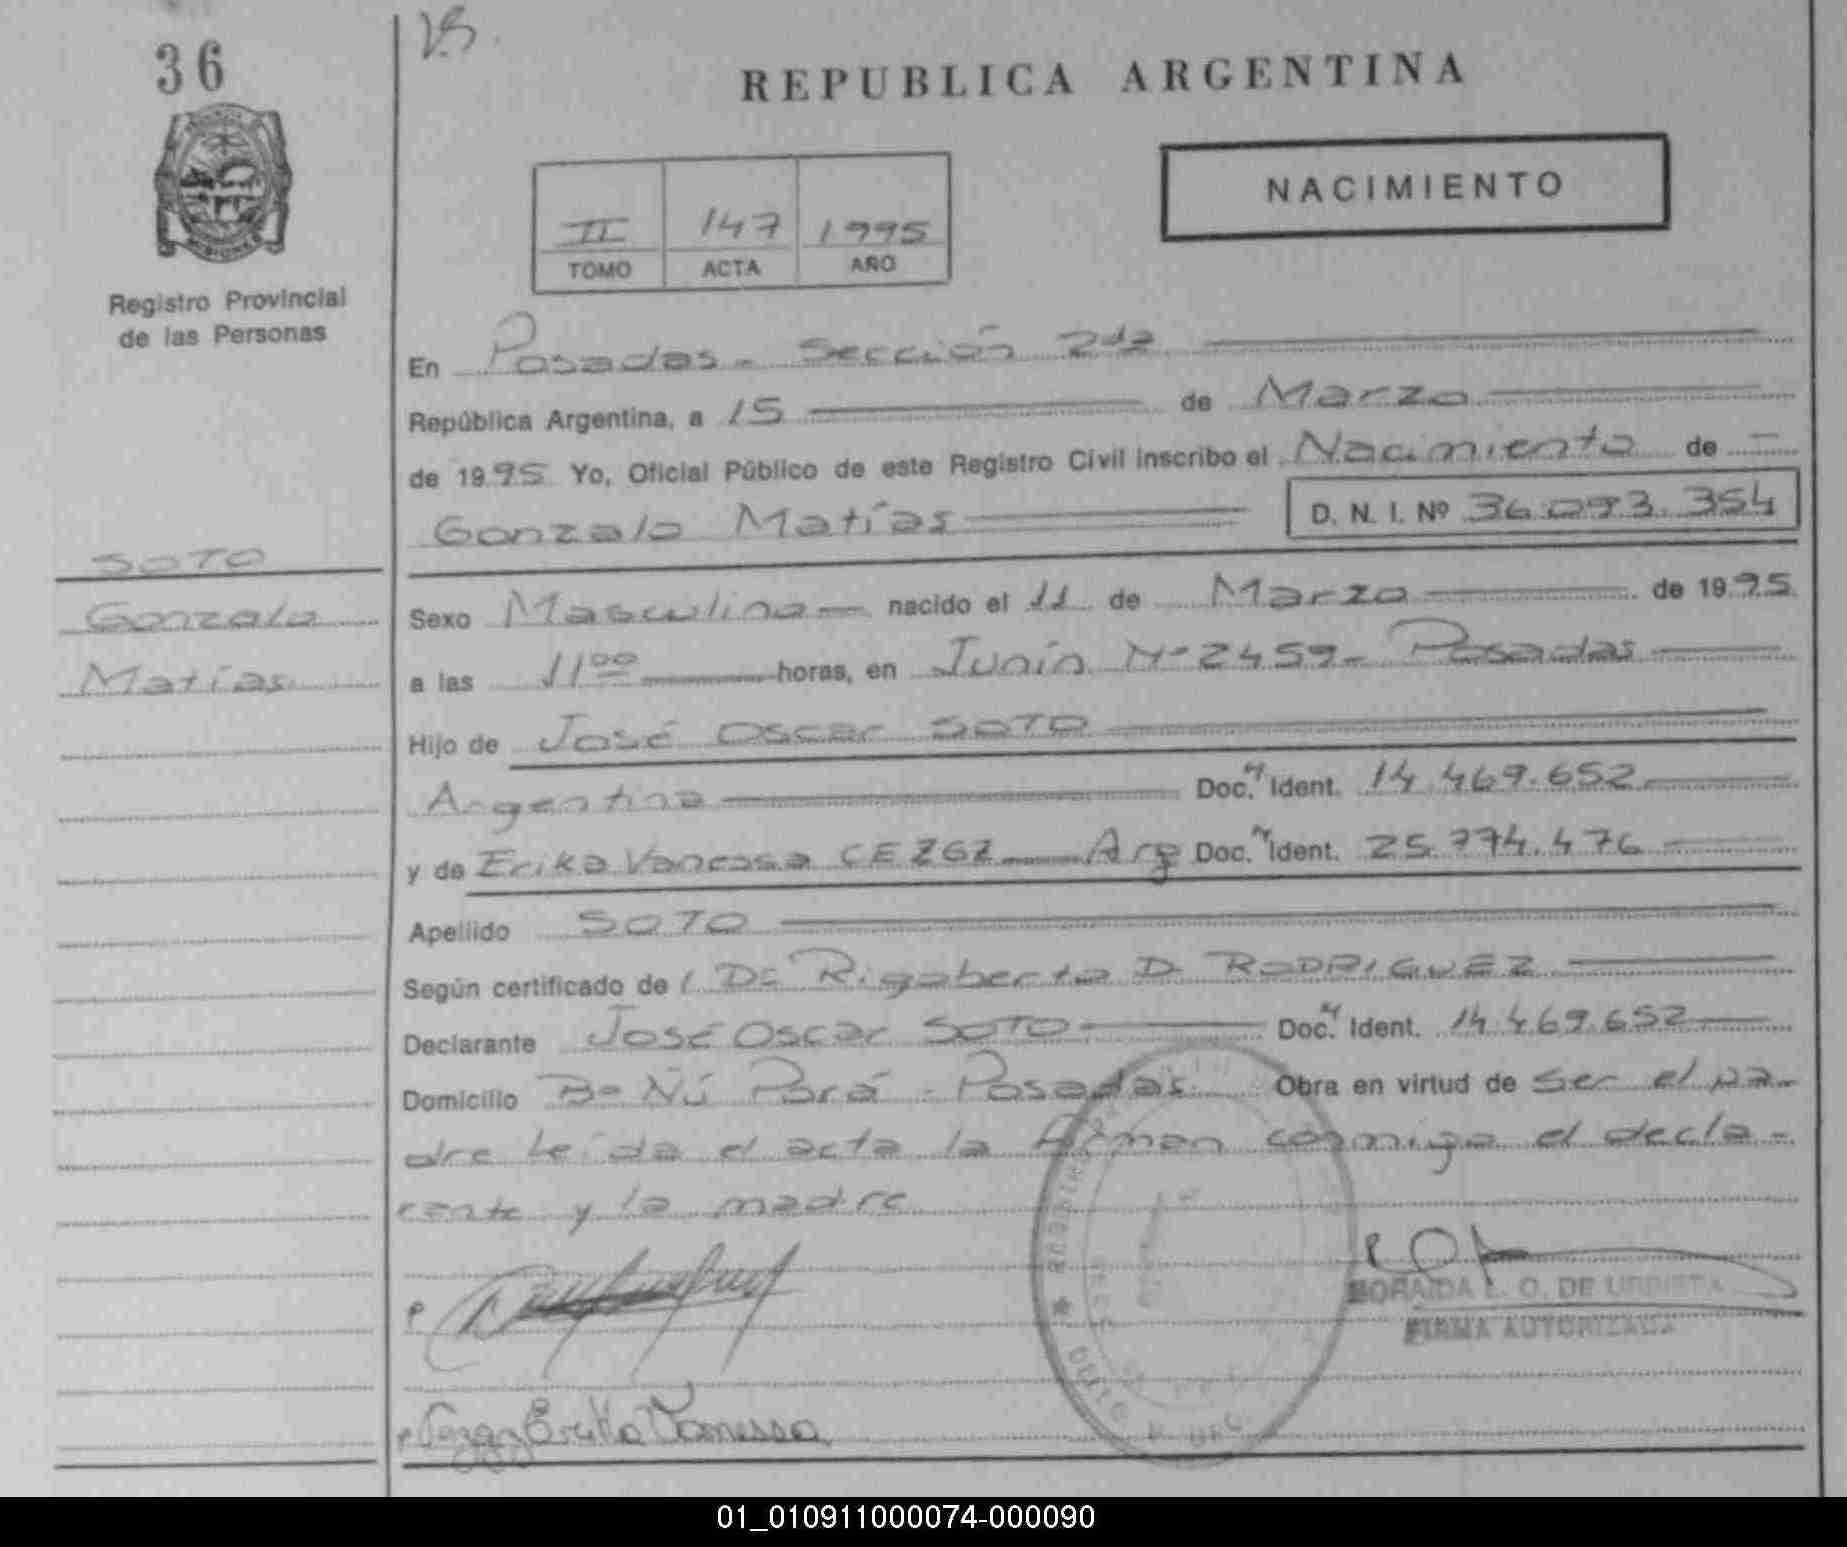 36
REPUBLICA ARGENTINA
NACIMIENTO
II 147 1995
TOMO ACTA AÑO
Registro Provincial
de las Personas
En Posadas - Sección 2da
República Argentina, a 15 de Marzo
de 1995 Yo, Oficial Público de este Registro Civil inscribo el Nacimiento de
Gonzalo Matías D. N. I. Nº 36.093.354
SOTO
Gonzalo
Matías
Sexo Masculino nacido el 11 de Marzo de 1995
a las 11 00 horas, en Junín Nº 2459 - Posadas
Hijo de José Oscar SOTO
Argentina Doc. Ident. 14.469.652
y de Erika Vanessa Arg Doc. Ident. 25.774.476
Apellido SOTO
Según certificado de Rigoberto D. RODRIGUEZ
Declarante José Oscar SOTO Doc. Ident. 14.469.652
Domicilio Bº Ñú Porá - Posadas Obra en virtud de ser el pa-
dre Leída el acta la firman conmigo el decla-
rante y la madre
FIRMA AUTORIZADA
Erika Vanessa
01_010911000074-000090